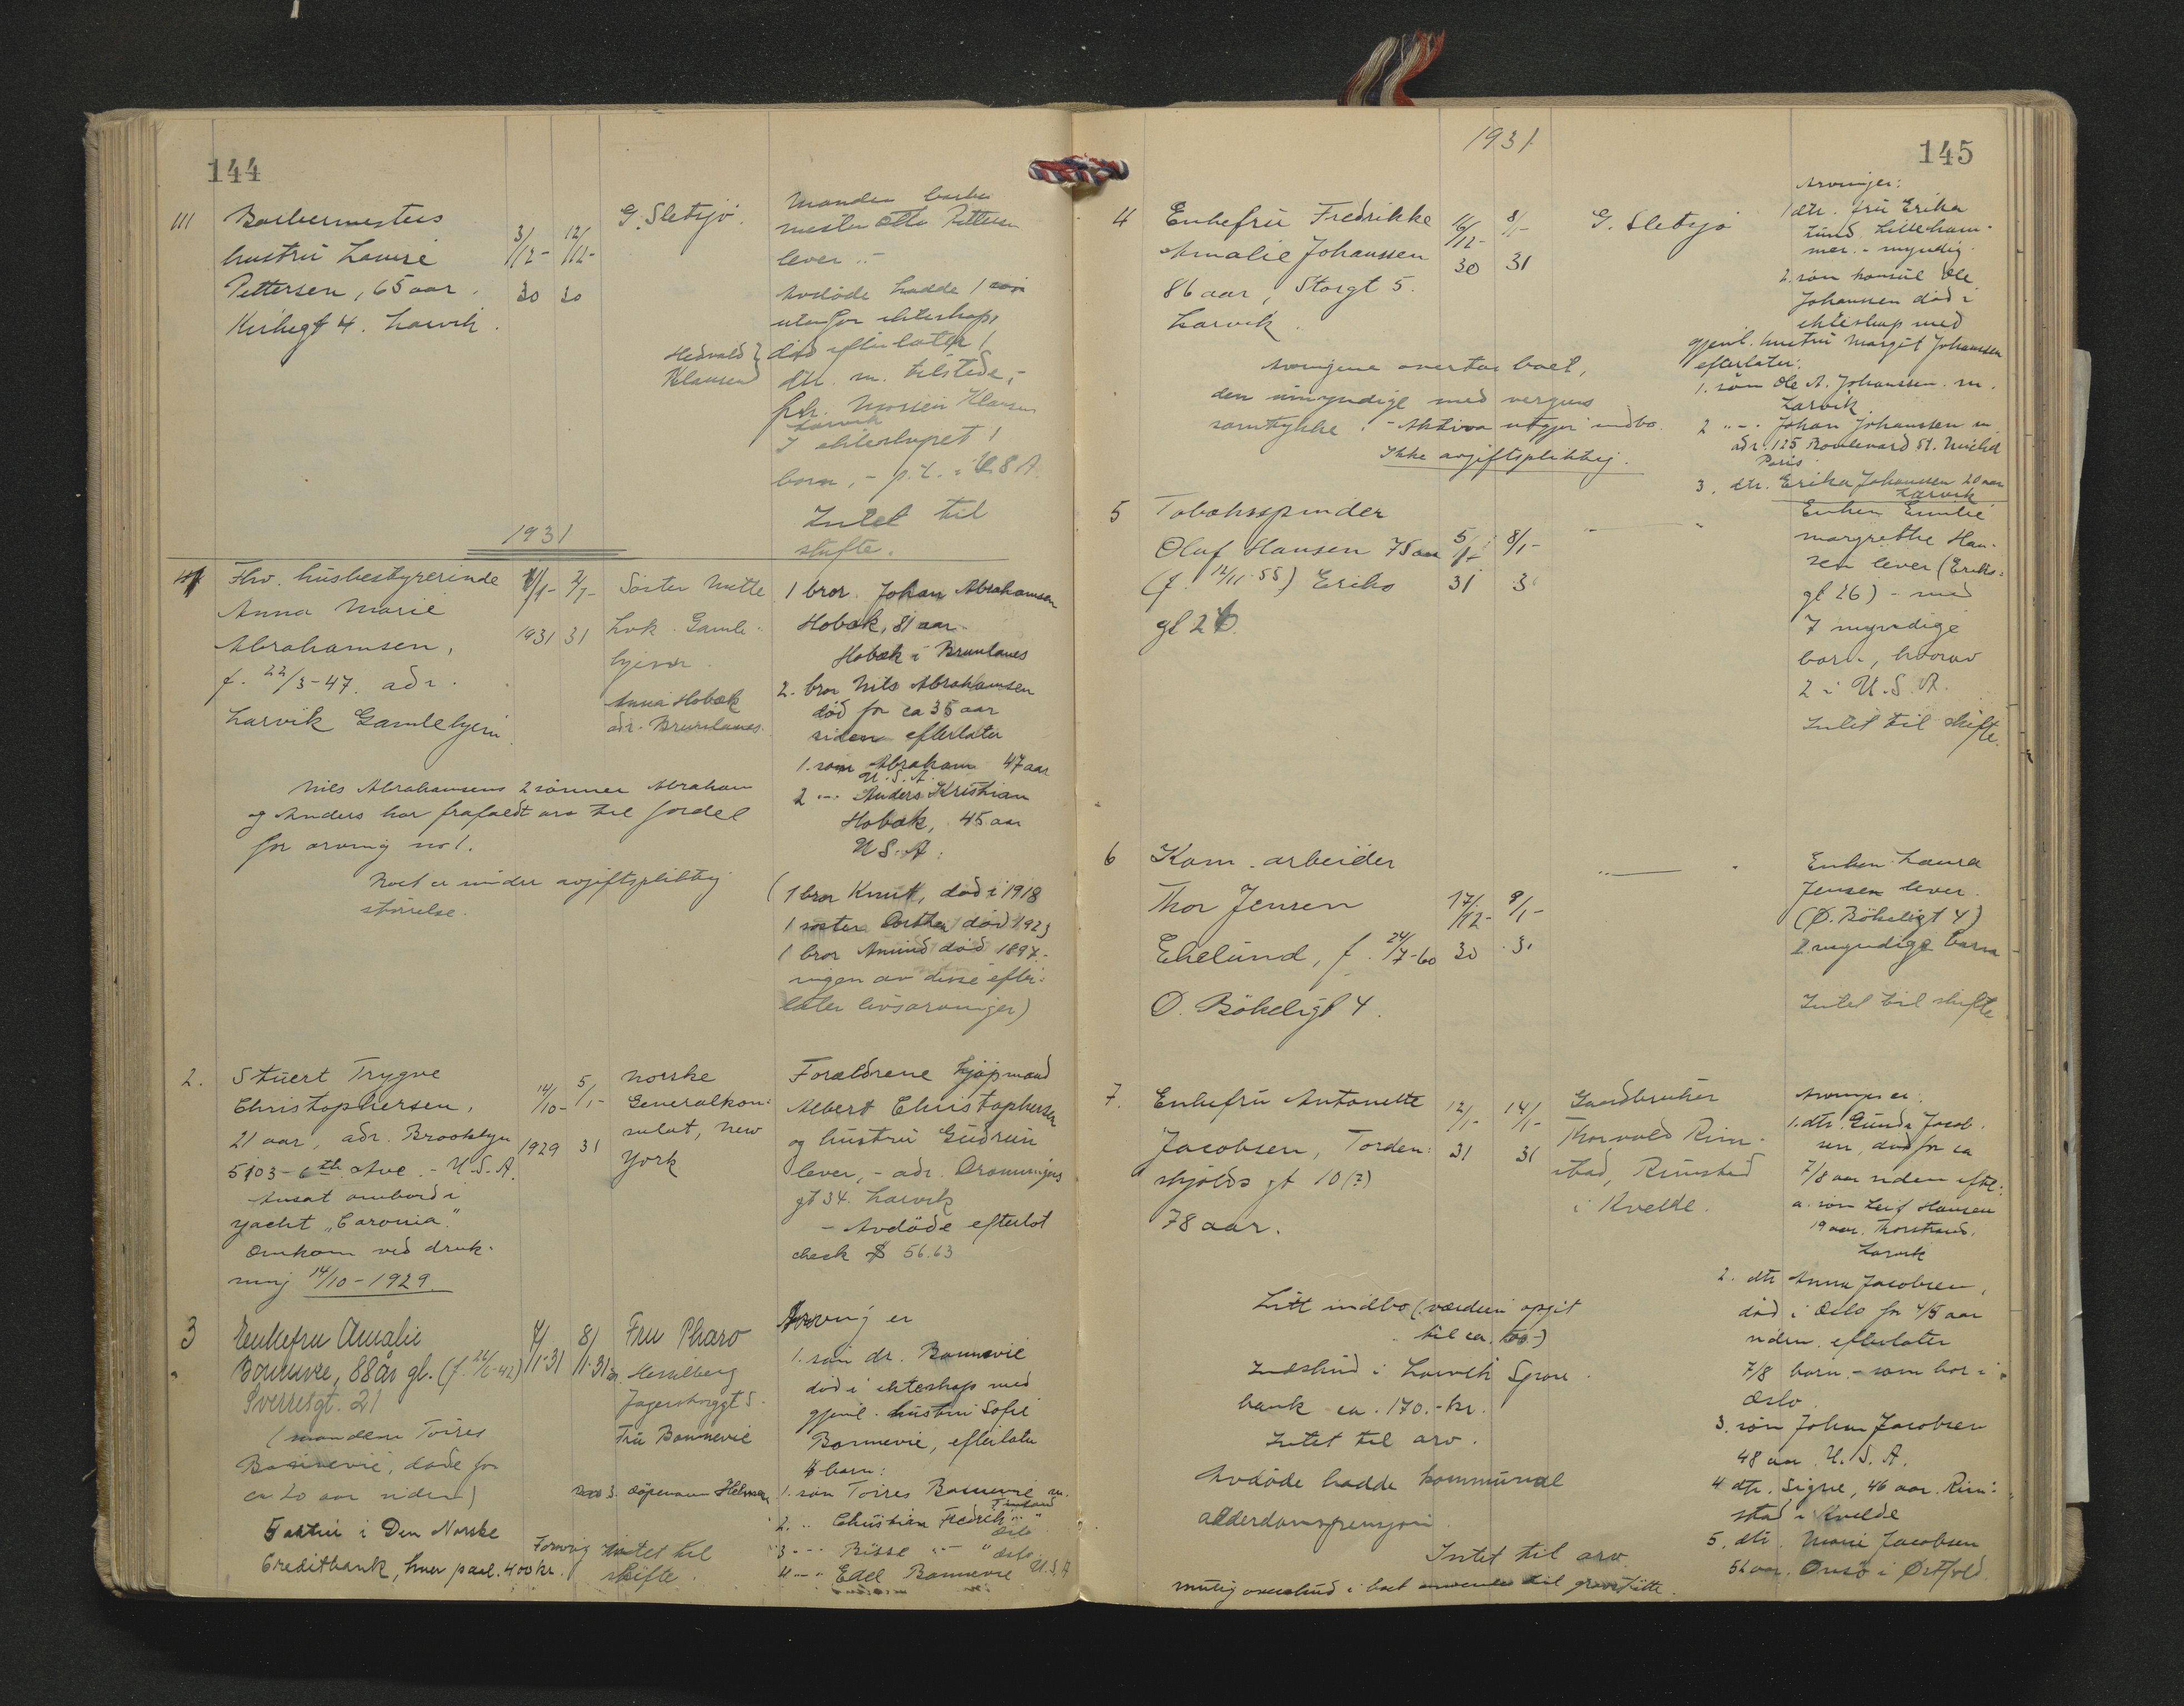 144
111 Barbermesters
hustru Lovise
Pettersen, 65 aar.
Kirkegt 4. Larvik.
3/12- 12/12-
30 30
G. Sletsjø.
Manden barber
mester Otto Pettersen
lever.-
Avdøde hadde 1 søn
utenfor ekteskap,
død efterlater 1
dtr. m. tilstede,-
frk. Klausen
Larvik
Hedvald
Klausen
I ekteskapet 1
barn, - p.t. i U.S.A.
Intet til
skifte.
1931
1 Fhv. husbestyrerinde
Anna Marie
Abrahamsen,
f. 22/3-47. adr.
Larvik Gamlehjem
1/1- 2/1-
1931 31
Søster Mette
Lvk. Gamle-
hjem.
Anna Hobæk
adr. Brunlanes.
1 bror. Johan Abrahamsen
Hobæk, 81 aar
Hobæk i Brunlanes
2. bror Nils Abrahamsen
død for ca 35 aar
siden efterlater
1. søn Abraham 47 aar
U.S.A.
2 -"- Anders Kristian
Hobæk, 45 aar
U.S.A.
Nils Abrahamsens 2 sønner Abraham
og Anders har frafaldt arv til fordel
for arving no 1.
Boet er under avgiftspliktig
størrelse.
(1 bror Knut, død i 1918
1 søster Dorthea død 1923
1 bror Amund død 1897.-
ingen av disse efter-
later livsarvinger)
2. Stuert Trygve
Christophersen,
21 aar, adr. Brooklyn
5103-6th Ave. - U.S.A.
Ansat ombord i
yacht "Caronia".
Omkom ved druk-
ning 14/10-1929.
14/10- 5/1-
1929 31
Norske
Generalkon-
sulat, New
York
Forældrene kjøpmand
Albert Christophersen
og hustru Gudrun
lever, - adr. Dronningens
gt 34. Larvik
- Avdøde efterlot
check $ 56.63
3 Enkefru Amalie
Bonnevie, 88 år gl. (f. 26/2-42)
Sverresgt. 21
(manden Toires
Bonnevie, døde for
ca 20 aar siden)
5 aktier i Den Norske
Creditbank, hver paal. 400 kr.
4/1-31 8/1-31
Fru Pharo
Hesselberg
Fru Bonnevie
Forøvrig intet til
skifte.
Arving er
1. søn dr. Bonnevie
død i ekteskap med
gjenl. hustru Sofie
Bonnevie, efterlater
4 barn:
1. søn Toires Bonnevie m.
2. " Christian Fredrik " "
Oslo
3 -"- Bisse -"- " Oslo
4 -"- Edel Bonnevie U.S.A
1931
145
4 Enkefru Fredrikke
Amalie Johanssen
86 aar, Storgt 5.
Larvik.
16/12- 8/1-
30 31
G. Sletsjø
Arvinger:
1 dtr. fru Erika
Lund. Lilleham-
mer. - myndig.
2. søn konsul Ole
Johanssen død i
ekteskap med
gjenl. hustru Margit Johanssen
efterlater:
1. søn Ole A. Johanssen. m.
Larvik
2 -"- Johan Johanssen m.
adr. 125 Boulevard St. Michel
Paris
3. dtr. Erika Johanssen 20 aar
Larvik
Arvingene overtar boet,
den umyndige med verges
samtykke. - Aktiva utgjør indbo.
Ikke avgiftspliktig.
5 Tobakspinder
Oluf Hansen 75 aar
(f. 12/11.55) Eriks
gt 26.
5/1- 8/1-
31 3
"
Enken Emilie
Margrethe Han-
sen lever (Eriks-
gt 26) - med
7 myndige
barn, hvorav
2 i U.S.A.
Intet til skifte.
6 Kom. arbeider
Thor Jensen
Ekelund, f. 24/7-60
Ø. Bøkeligt 4.
17/12- 9/1-
30 31
"
Enken Laura
Jensen lever.
(Ø. Bøkeligt 4)
2 myndige barn
Intet til skifte
7. Enkefru Antonette
Jacobsen, Torden-
skjolds gt 10 (?)
78 aar.
12/1- 14/1-
31 31
Gaardbruker
Thorvald Rim-
stad, Rimstad
i Kvelde.
Arvinger er.
1. dtr. Gunda Jacob-
sen, død for ca
7/8 aar siden eftl:
a. søn Leif Hansen
19 aar. Thorstrand.
Larvik
2. dtr Anna Jacobsen,
død i Oslo for 4/5 aar
siden. efterlater
7/8 barn. - som bor i
Oslo
3. søn Johan Jacobsen
48 aar. U.S.A.
4 dtr. Signe, 46 aar. Rim-
stad i Kvelde
5. dtr. Marie Jacobsen
52 aar. Onsø i Østfold.
Litt indbo (værdien opgit
til ca. 100.-)
Indskud i Larvik Spare
bank ca. 170.- kr.
Intet til arv.
Avdøde hadde kommunal
alderdomspensjon
Intet til arv.
mulig overskud i boet anvendes til gravstøtte.